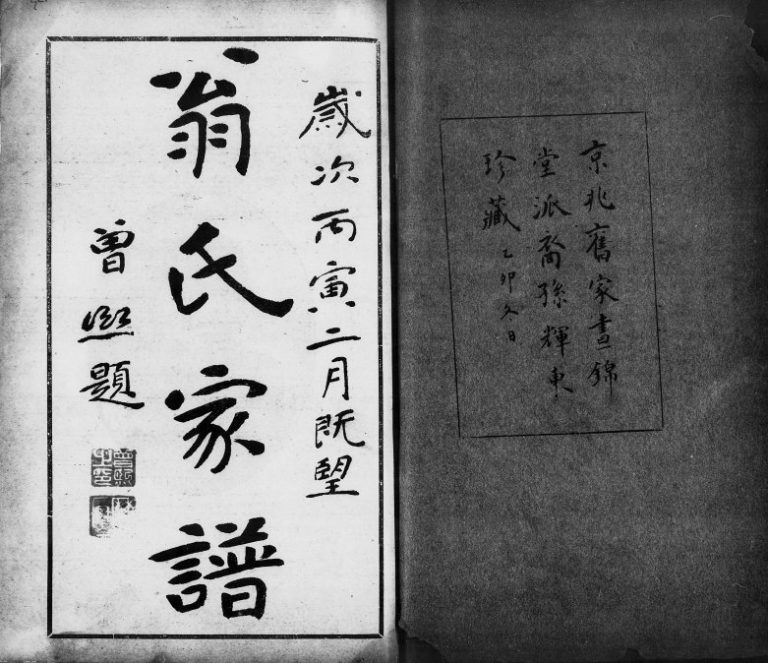 京兆舊家晝錦
堂派裔孫輝東
珍藏 乙卯冬日
歲次丙寅二月既望
翁氏家譜
曾熙題